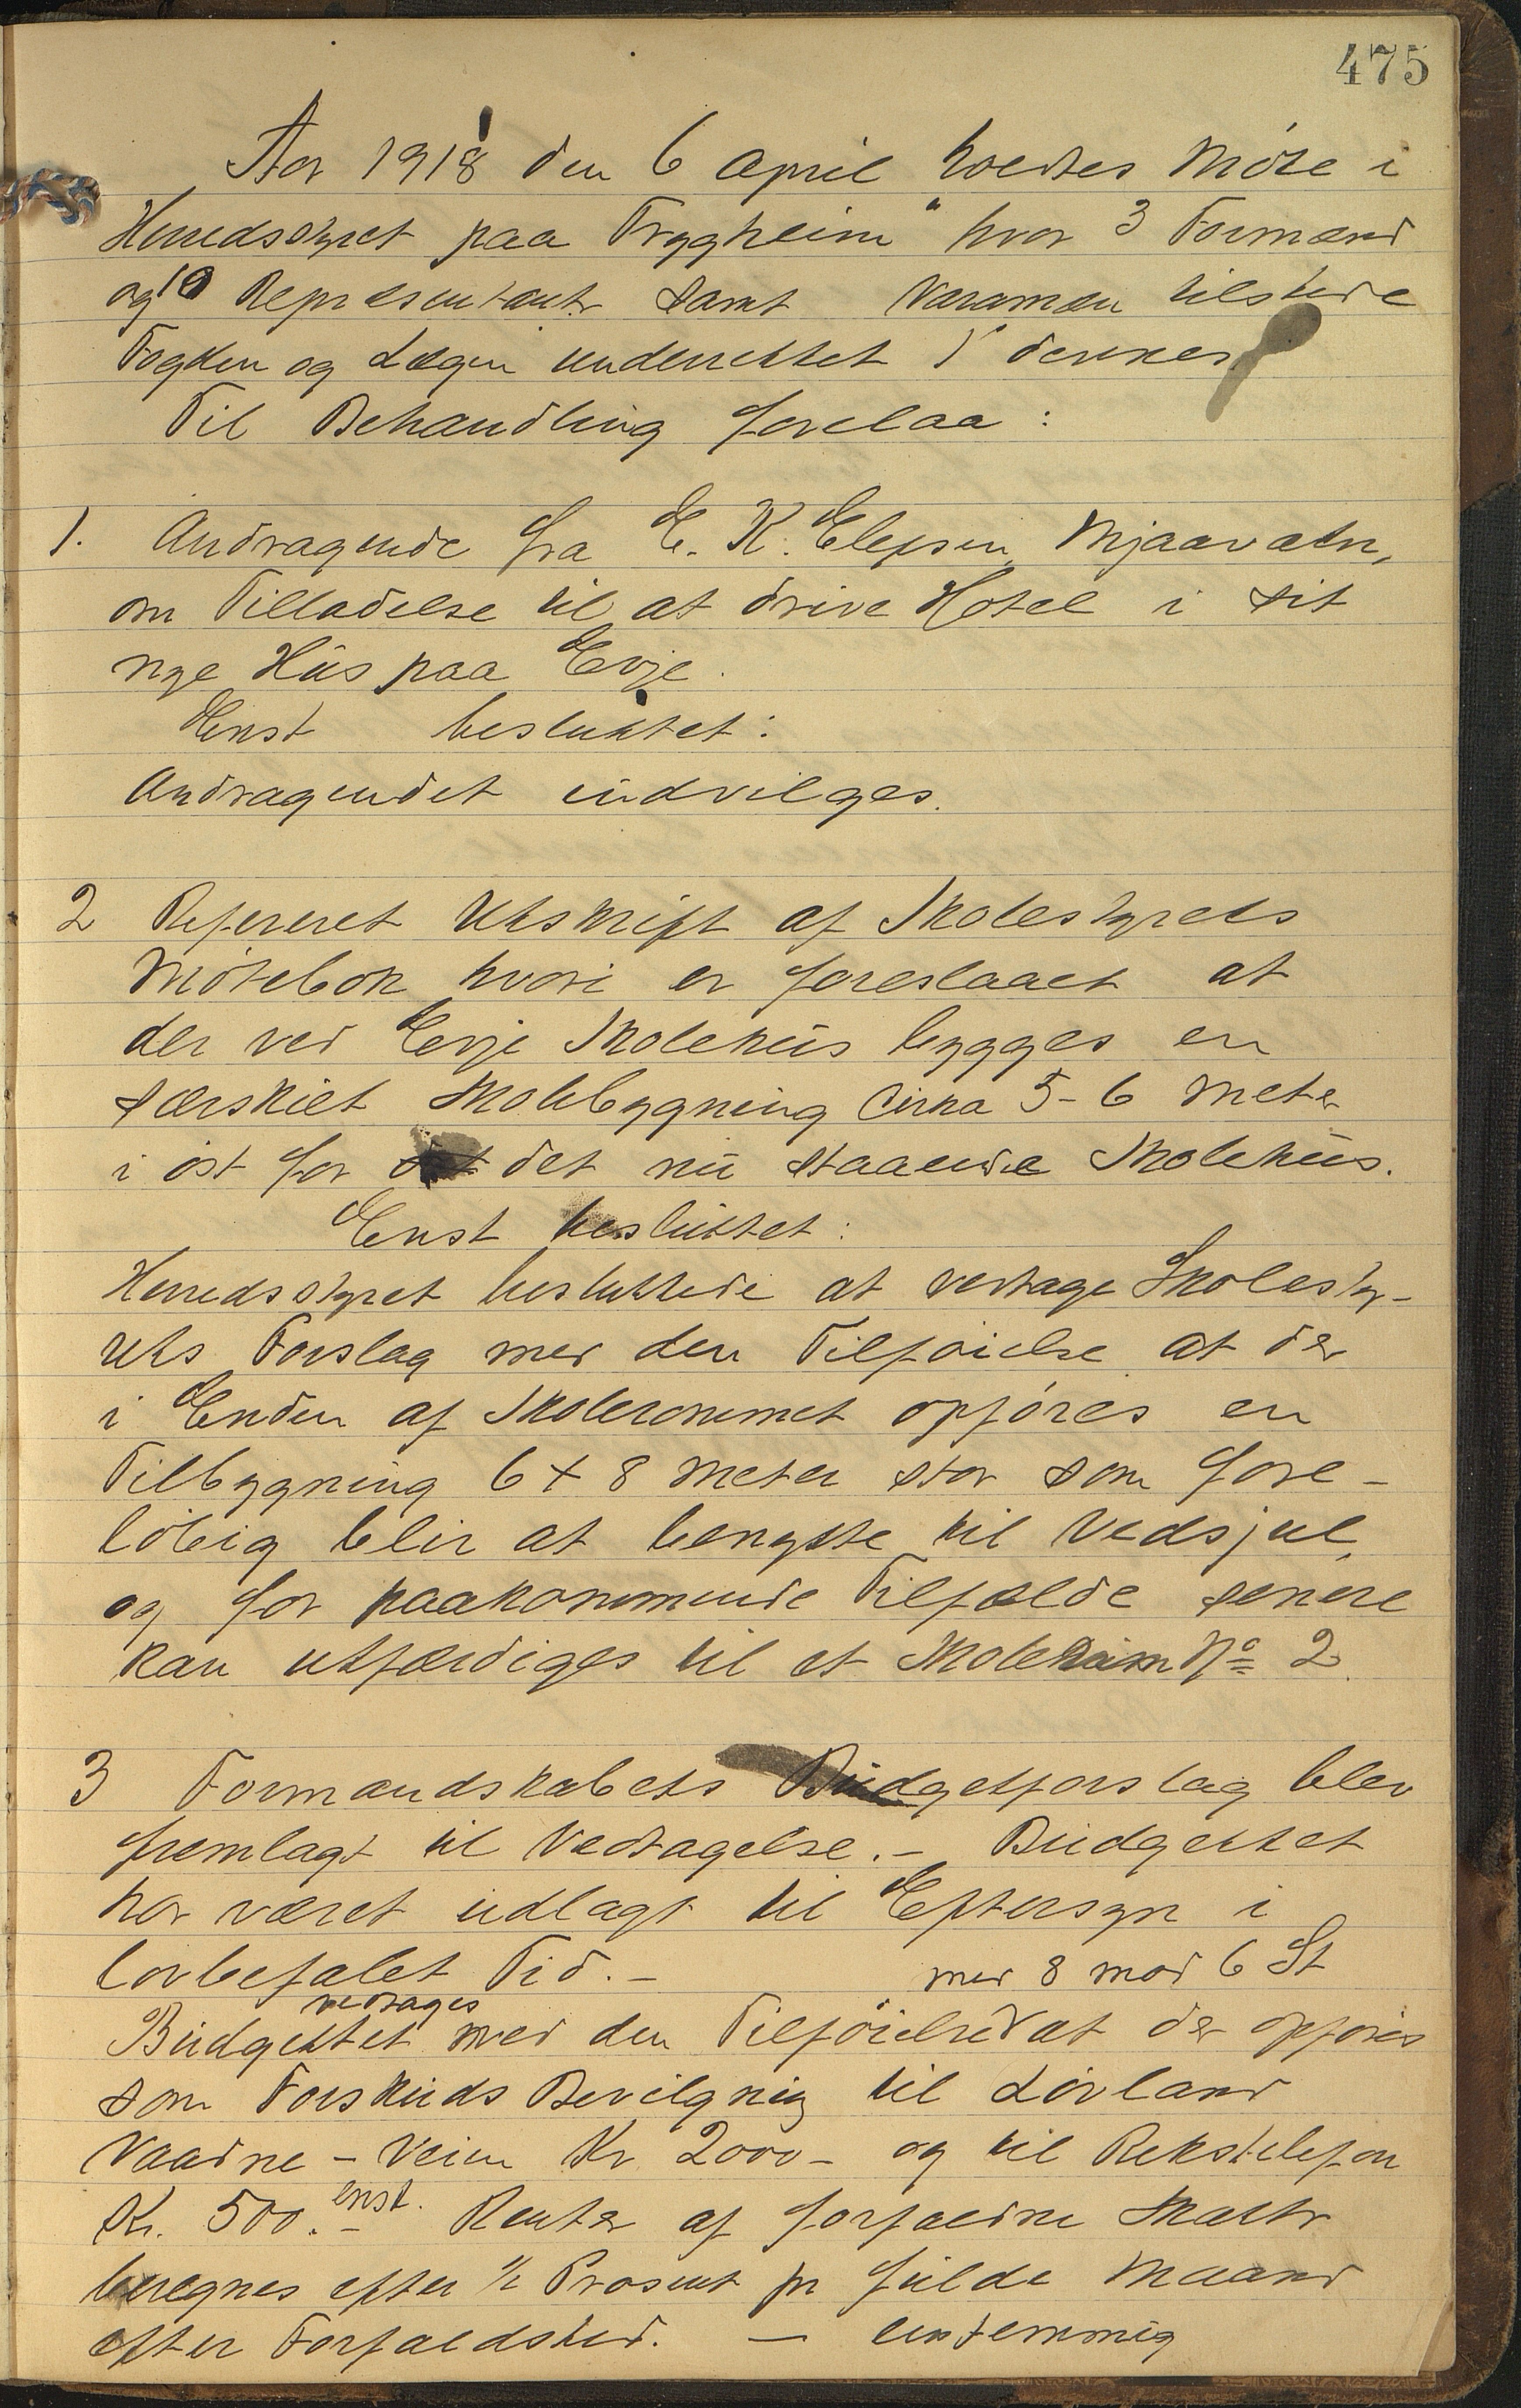 475
Aar 1918 den 6 april holdtes Møte i
Herredsstyret paa Trygheim" hvor 3 Formænd
og 10 Repræsentanter samt Varamæn tilstede
Fogden og Lægen underrettet
Til Behandling forelaa:
1. Andragende fra E. K. Elefsen, Mjaavatn,
om Tilladelse til at drive Hotel i sit
nye Hus paa Evje.
Enst besluttet:
Andragendet indvilges.
2 Refereret Utskrift af Skolestyrets
Møtebok hvori er foreslaaet at
der ved Evje Skolehus bygges en
særskilt Skolebygning Cirka 5-6 Meter
i øst for det det nu staaende Skolehus.
Enst besluttet:
Herredsstyret besluttede at vedtage Skolesty-
rets Forslag med den Tilføielse at der
i Enden af Skolerommet opføres en
Tilbygning 6 + 8 Meter stor som fore-
løbig blir at benytte til Vedsjul,
og for paakommende Tilfælde senere
kan utfærdiges til et Skolerum No 2.
3 Formandskabets Budgetforslag blev
fremlagt til Vedtagelse.- Budgettet
har været udlagt til Eftersyn i
lovbefalet Tid.-
med 8 mod 6 St
vedtages
Budgettet med den Tilføielse at der opføres
som Forskuds Bevilgning til Løvland
Vaadne - Veien Kr 2000- og til Rikstelefon
Kr. 500.- enst. Renter af forfaldne Skatter
beregnes efter 1/2 Prosent pr fulde Maaned
efter Forfaldstid. — enstemmig